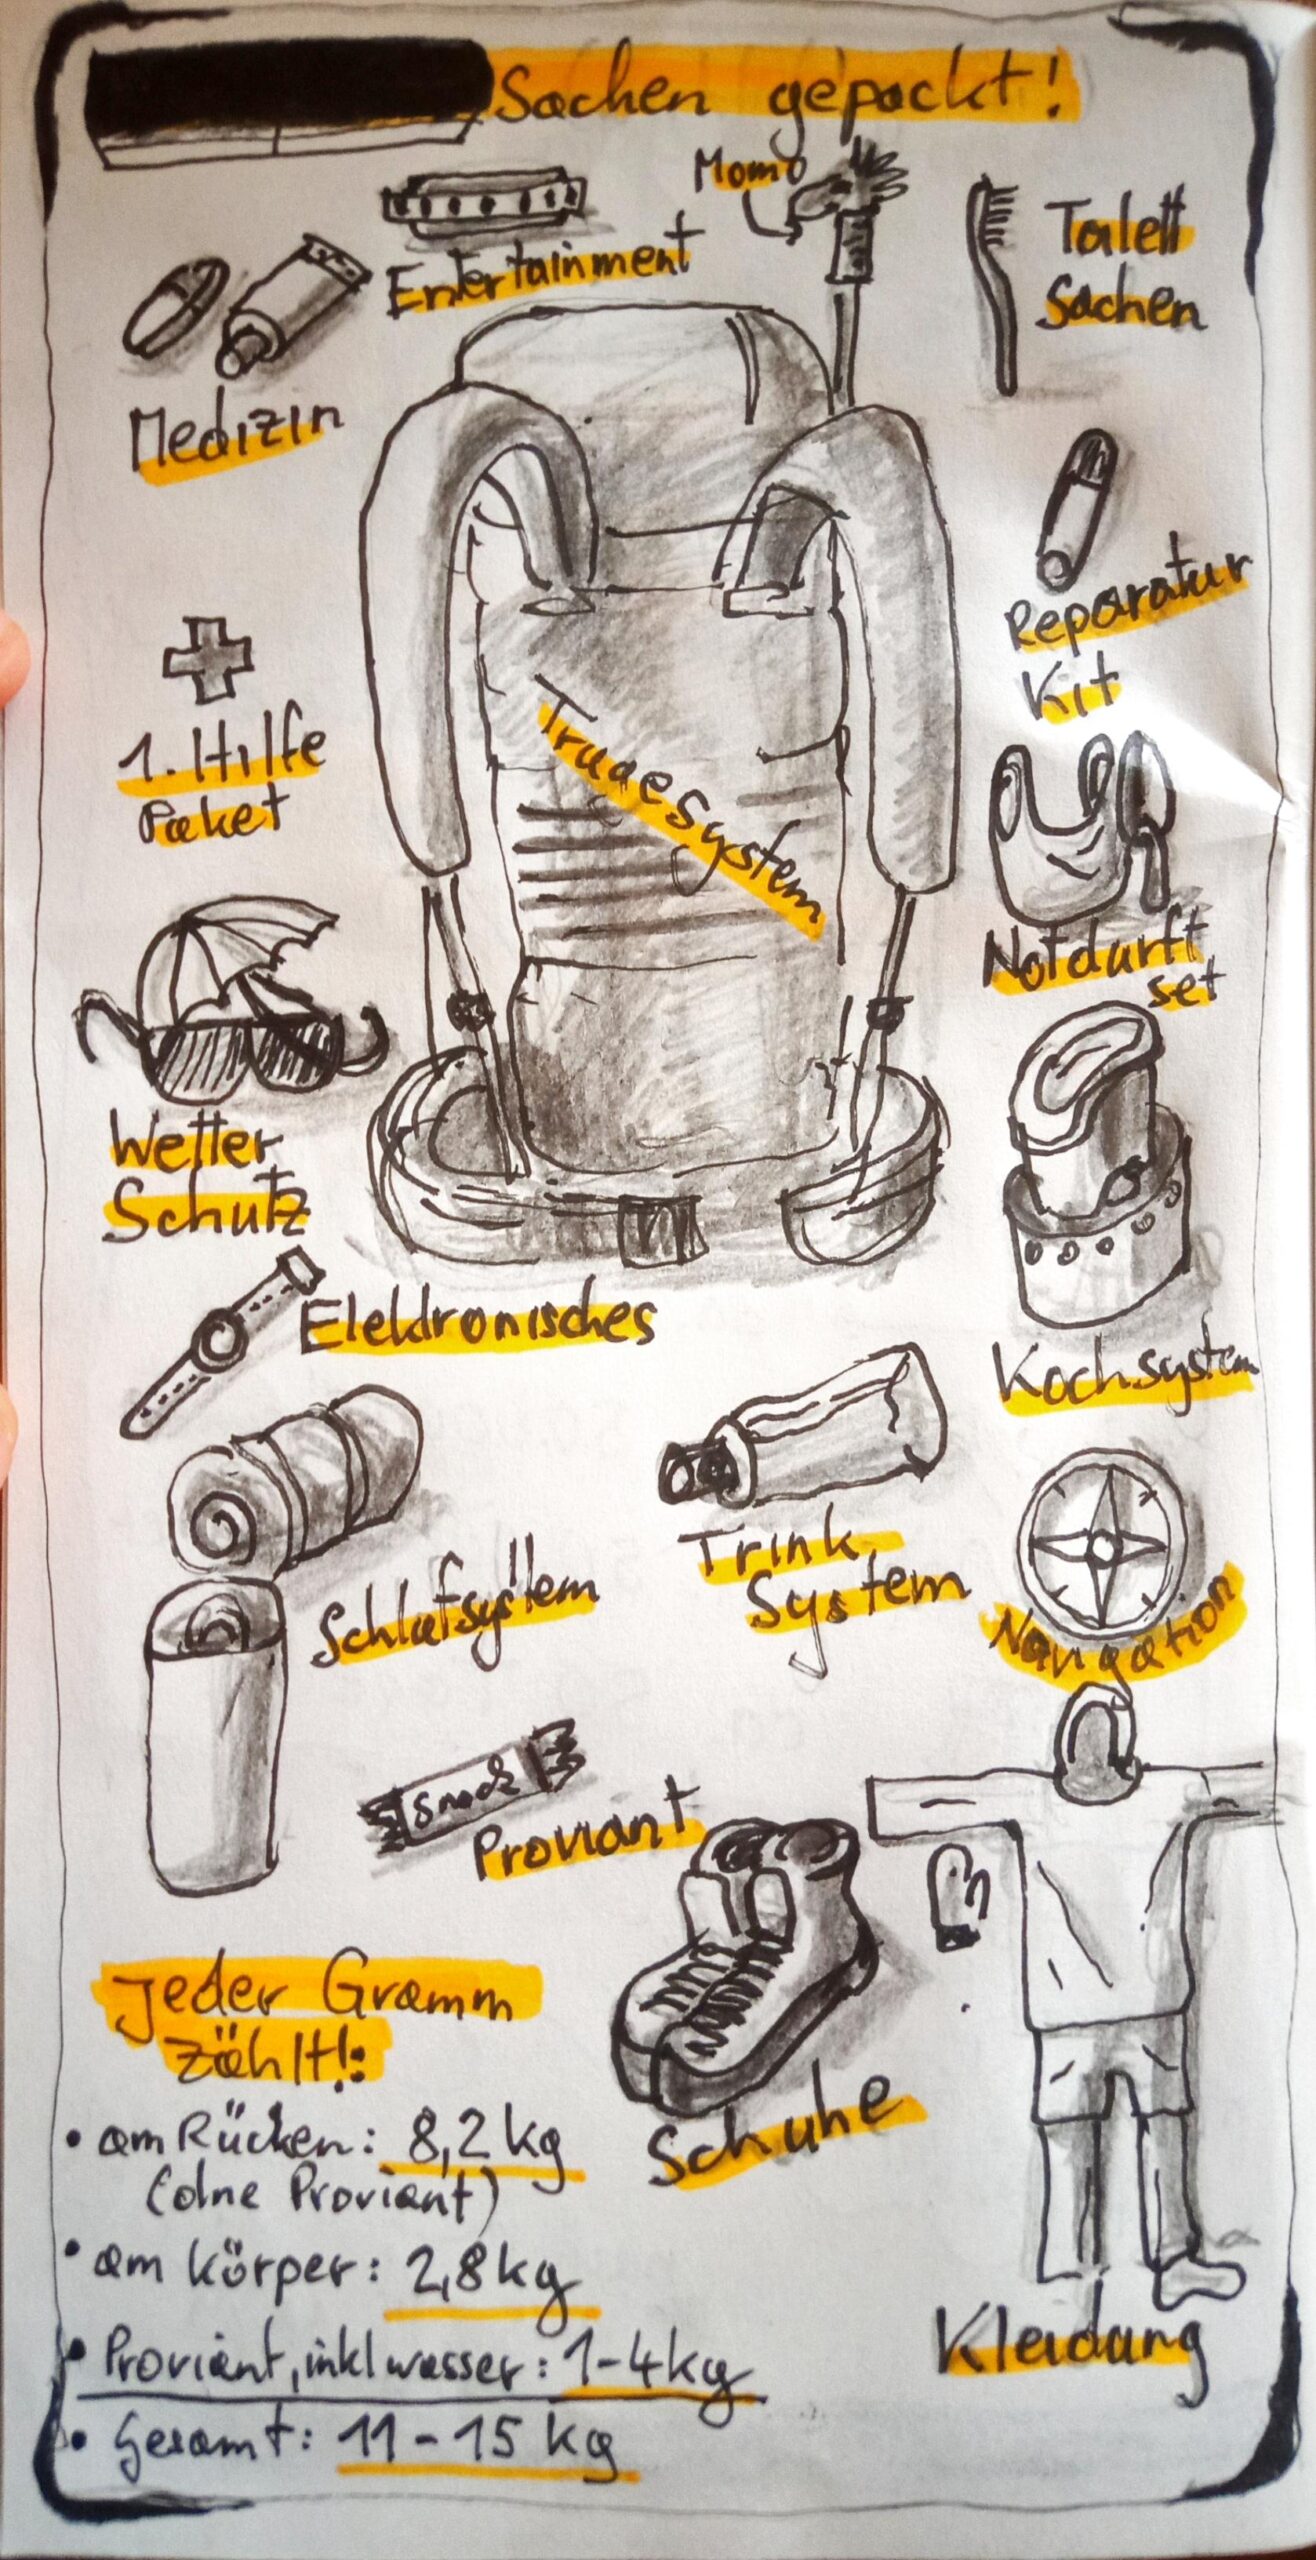 Sachen gepackt!
Momo
Entertainment
Toilett
Sachen
Medizin
Reparatur
Kit
1. Hilfe
Paket
Tragesystem
Notdurft
set
Wetter
Schutz
Elektronisches
Kochsystem
Trink
System
Schlafsystem
Navigation
Snack
Proviant
Jeder Gramm
zählt!:
Schuhe
• am Rücken: 8,2 kg
(ohne Proviant)
• am Körper: 2,8 kg
• Proviant, inkl wasser: 1-4 kg
• Gesamt: 11 - 15 kg
Kleidung